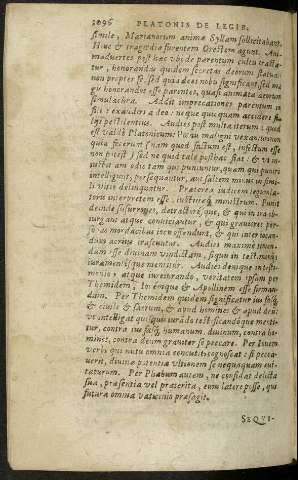 1096 PLATONIS DE LEGIB.
simile, Marianorum animæ Syllam sollicitabant.
Huc & tragœdiæ furentem Orestem agunt. Ani-
maduertes post hæc vbi de parentum cultu tracta-
tur, honorandas quidem secretas deorum statuas
non propter se, sed quia deos nobis significant: sed ma-
gis honorandos esse parentes, quasi animata deorum
simulachra. Addit imprecationes parentum in
filios exaudiri à deo: neque quicquam accidere fi-
lijs pestilentius. Audies post multa iterum, quod
est valde Platonicum: Puniri malignè vexans non
quia fecerint (nam quod factum est, infectum esse
non potest) sed ne quid tale posthac fiat: & vt in-
iustitiam odio tam qui puniuntur, quam qui puniri
intelligunt, persequantur, aut saltem minus in simi-
li vitio delinquatur. Præterea iudicem legum la-
toris interpretem esse, iustitiæque ministrum. Punit
deinde susurrones, detractores, que, & qui in ira ob-
iurgans atque conuiciantur, & qui grauiores per-
sonas mordacibus iocis offendunt, & qui inter iocan-
dum acrius irascuntur. Audies maximè timen-
dum esse diuinam vindictam, si quis in testimonijs
iuramentisque mentitur. Audies denique in testi-
monio atque iurebrando, veritatem ipsam per
Themidem, Iouemque & Apollinem esse firman-
dam. Per Themidem quidem significatur ius fasque
& ciuile & sacrum, & apud homines & apud deū:
vt intelligat quisquis iurādo testificandóque menti-
tur, contra ius fasque humanum, diuinum, contra ho-
mines, contra deum grauiter se peccare. Per Iouem
verò qui nutu omnia concutit, cognoscat se si pecca-
uerit, diuina potentia vltionem se nequaquam eui-
taturum. Per Phœbum autem, ne confidat delicta
sua, præsentia vel præterita, eum latere posse, qui
futura omnia vaticinio præsagit.
SEQVI-